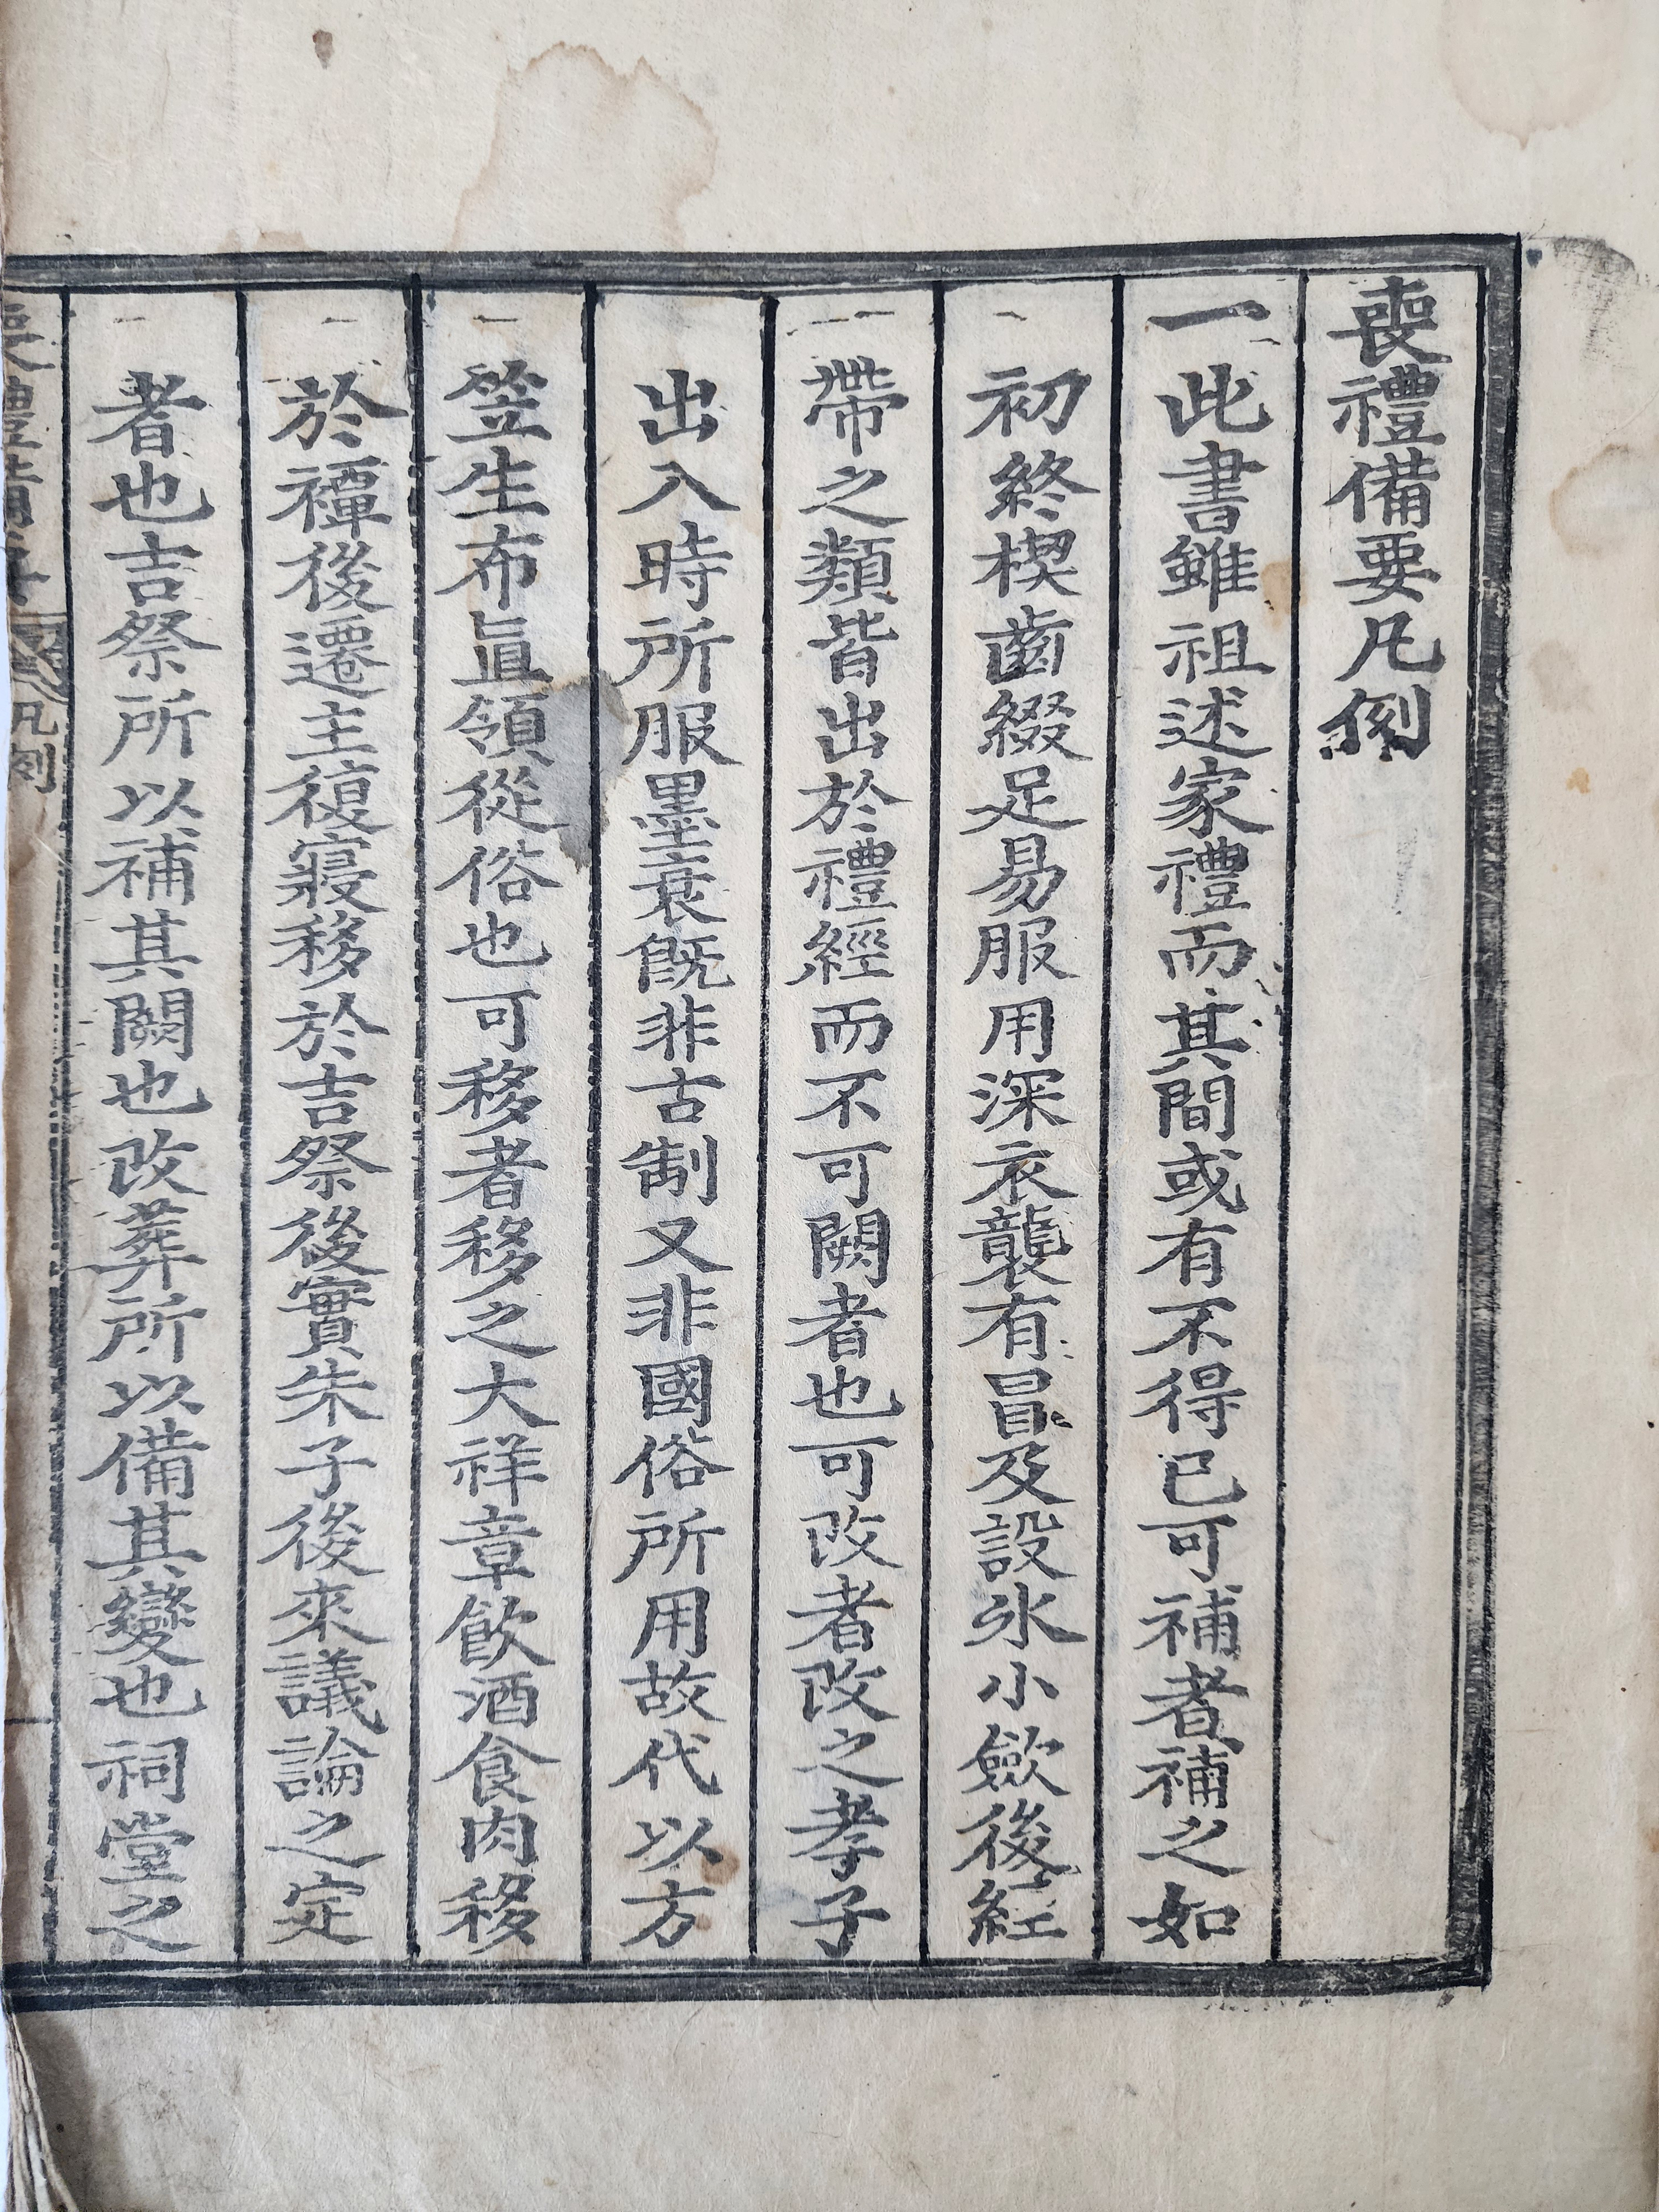 喪禮備要凡例
一此書雖祖述家禮而其間或有不得已可補者補之如
初終楔齒綴足易服用深衣襲有冒及設氷小斂後絰
帶之類皆出於禮經而不可闕者也可改者改之孝子
出入時所服墨衰旣非古制又非國俗所用故代以方
笠生布直領從俗也可移者移之大祥章飮酒食肉移
於禫後遷主復寢移於吉祭後實朱子後來議論之定
者也吉祭所以補其闕也改葬所以備其變也祠堂之
喪禮備要 凡例